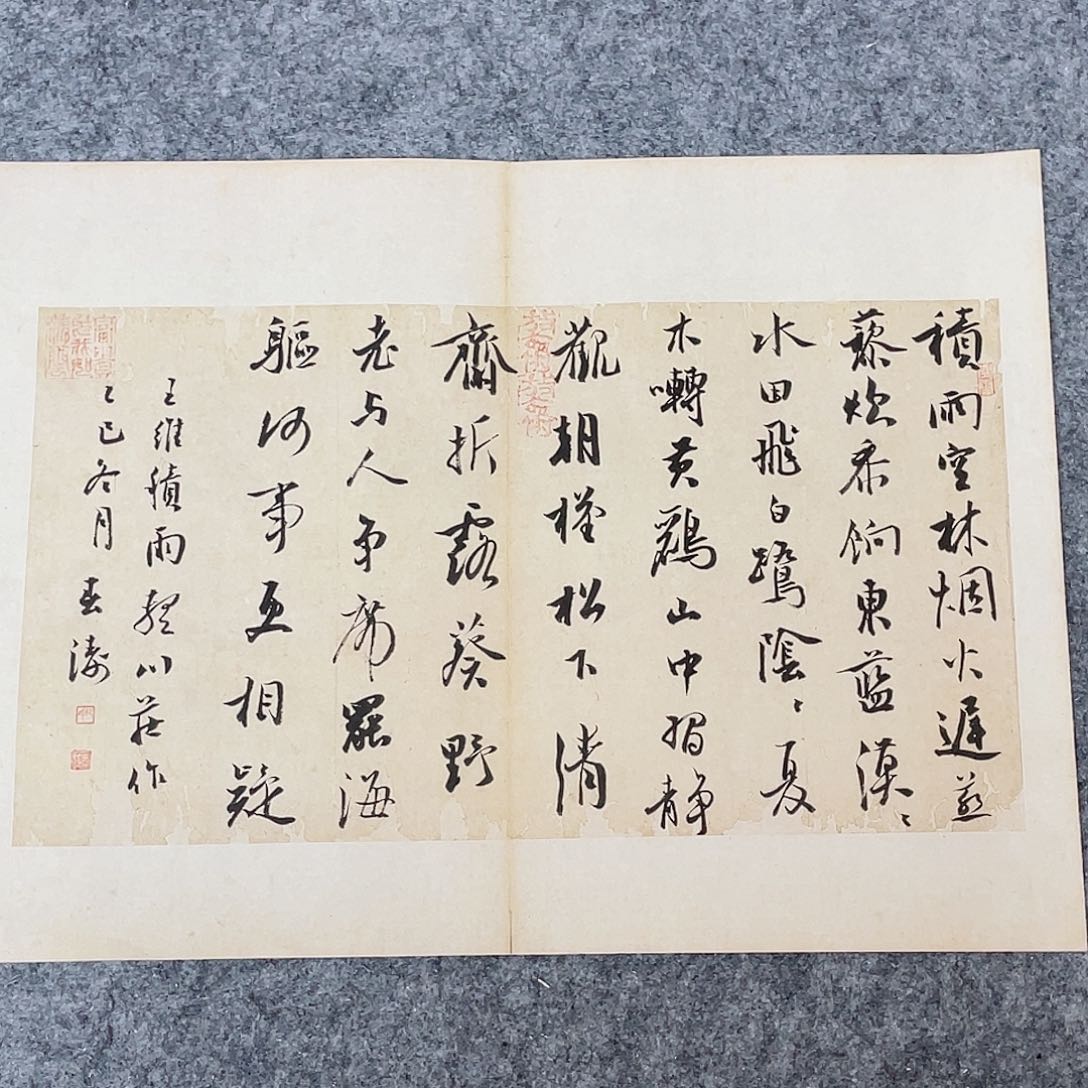 積雨空林烟火遲蒸
藜炊黍餉東藍漠〻
水田飛白鷺陰〻夏
木囀黄鸝山中習靜
觀朝槿松下清
齋折露葵野
老与人爭席罷海
軀何事更相疑
王維積雨輞川莊作
乙巳冬月